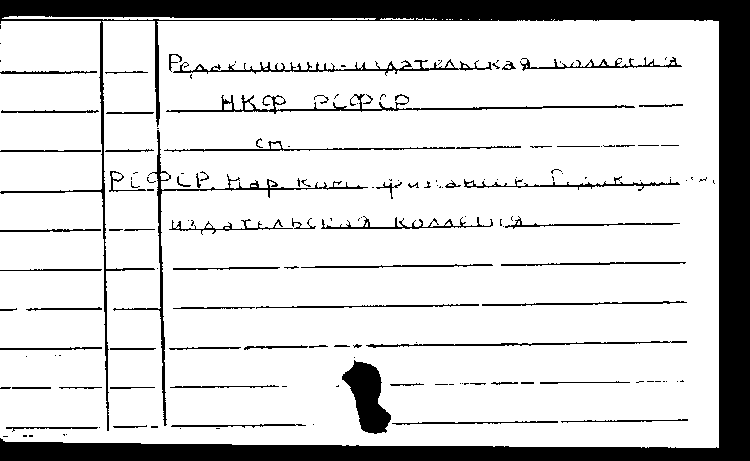 Редакционно-издательская коллегия
НКФ РСФСР
см.
РСФСР. Нар. ком. финансов. Редакционно-
издательская коллегия.